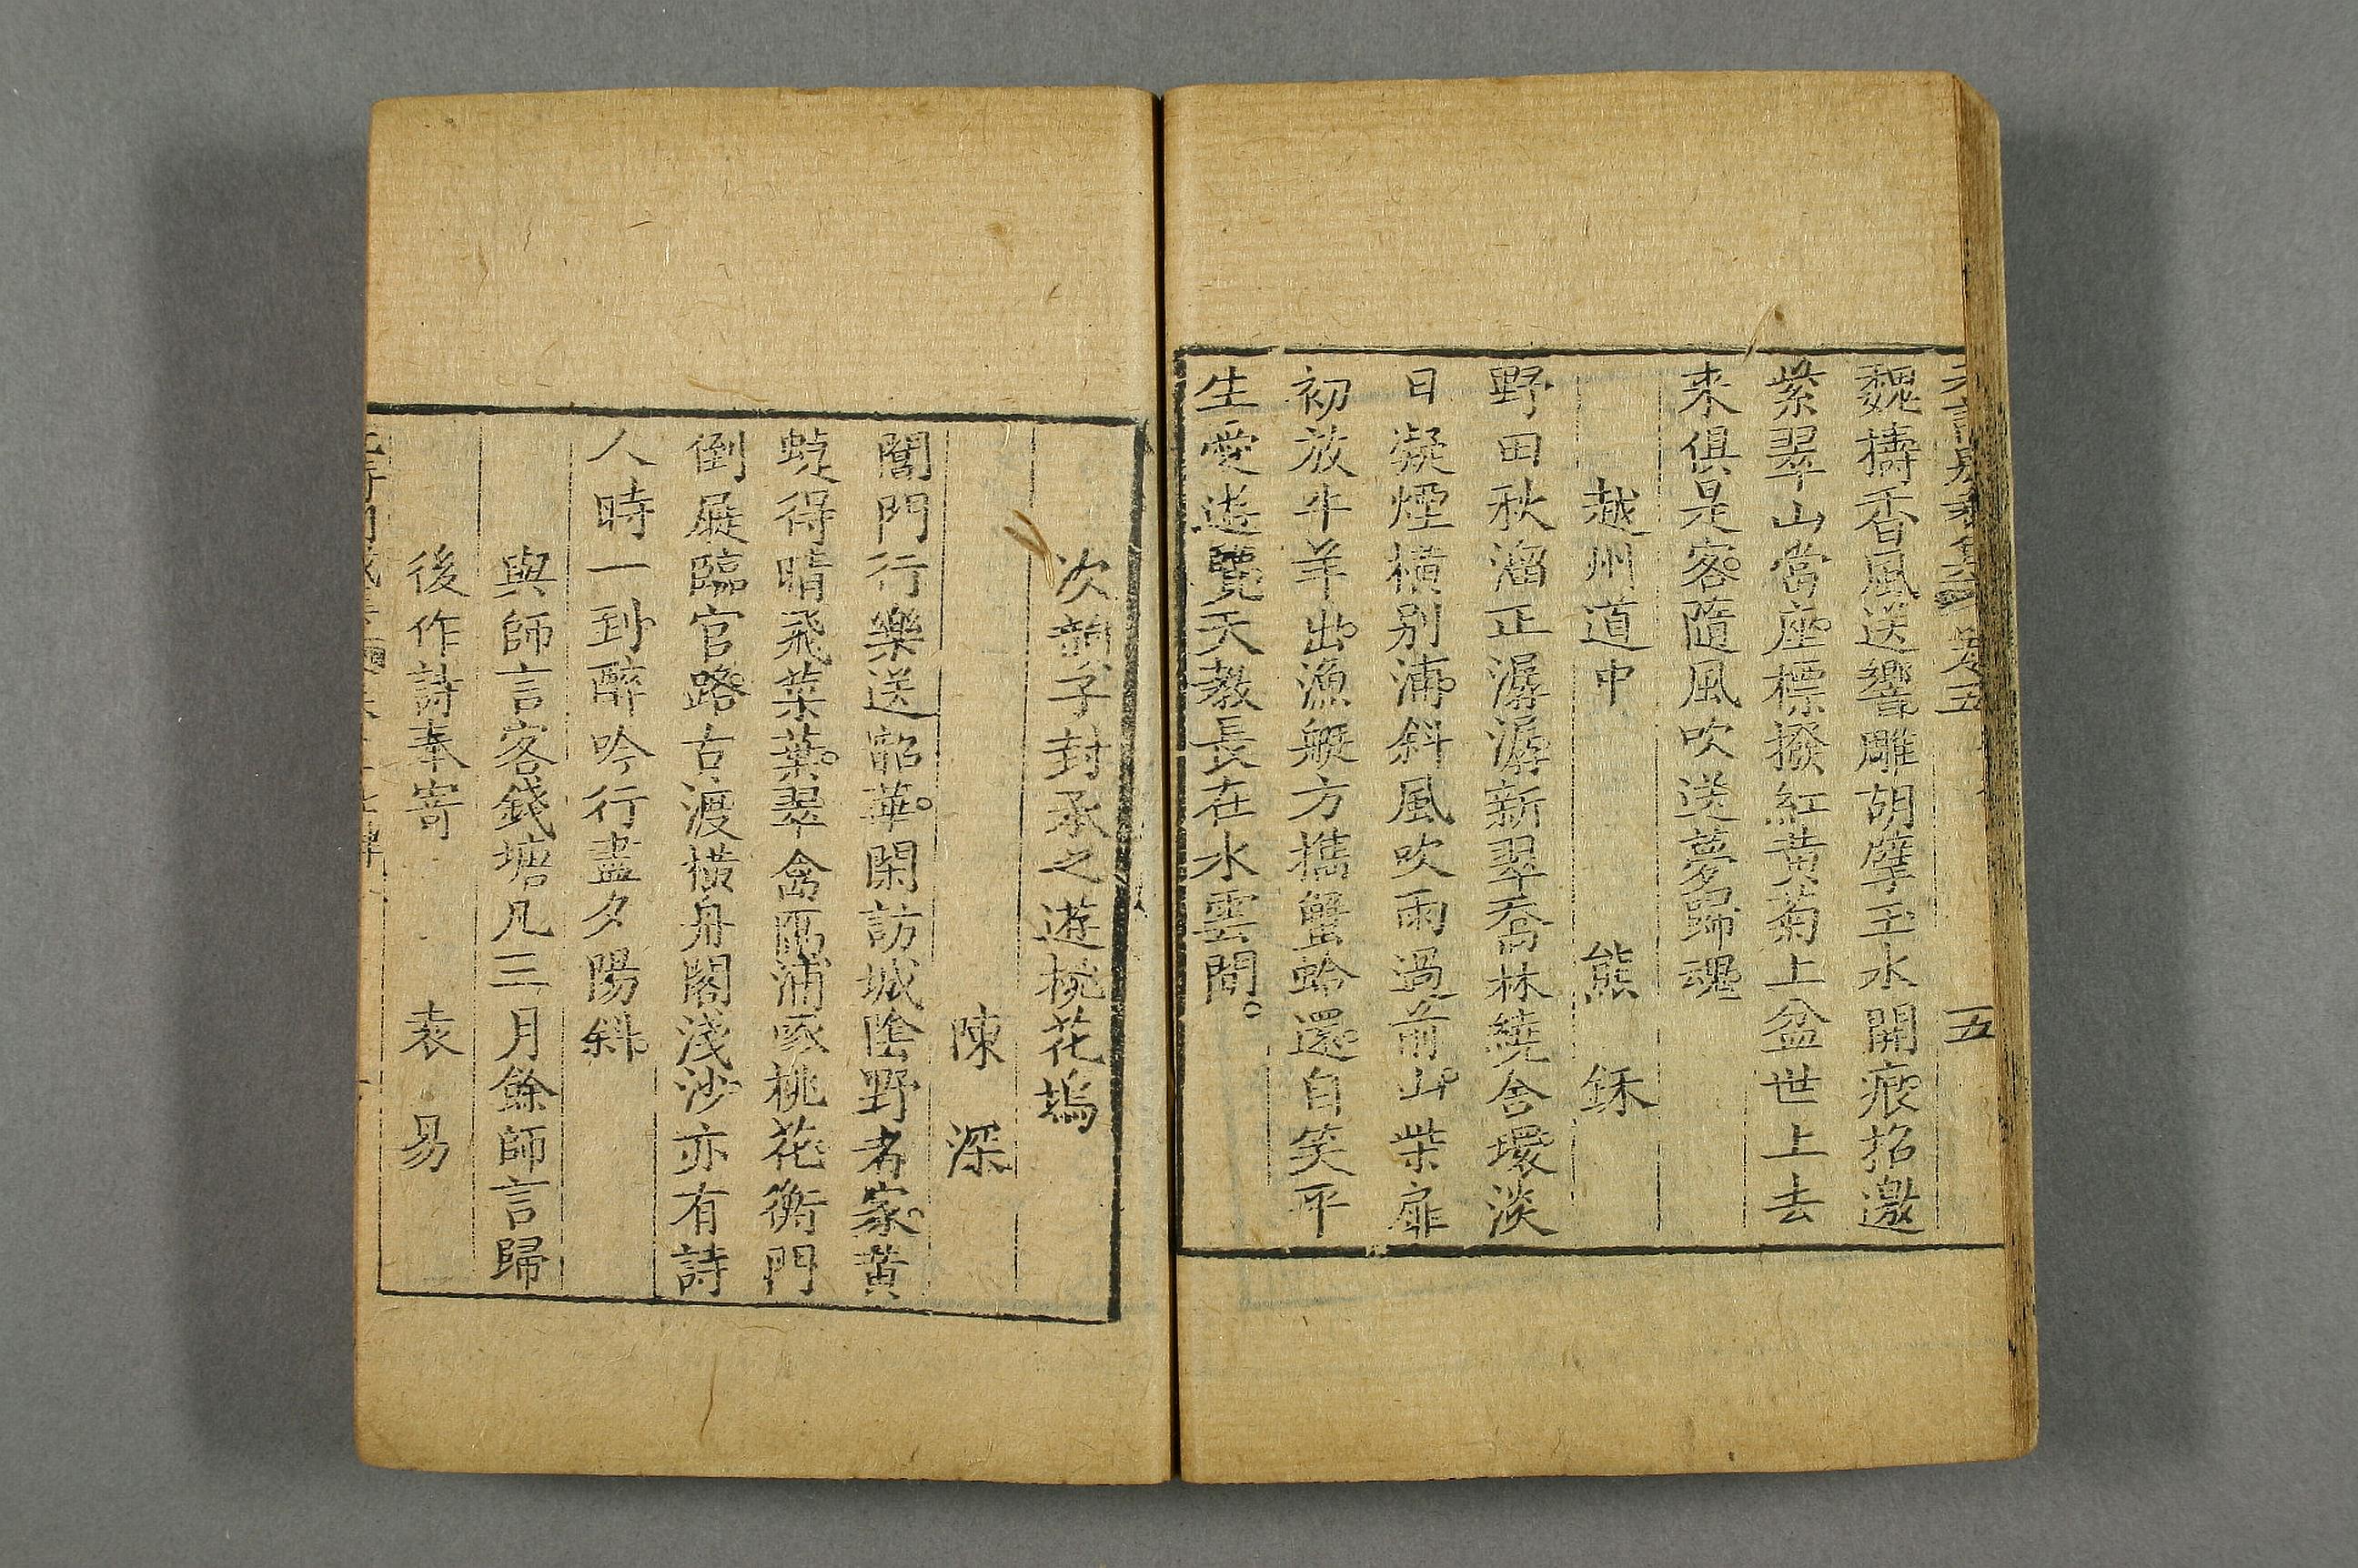 五
魏擣香風送響雕胡擘玉水開痕招邀
紫翠山當座標撥紅黃菊上盆世上去
来俱是客隨風吹送夢歸魂
越州道中　熊鉌
野田秋溜正潺潺新翠喬林繞舎環淡
日凝煙橫別浦斜風吹雨過前山柴扉
初放牛羊出漁艇方攜蟹蛤還自笑平
生愛遊覽天教長在水雲間
次韵子封承之遊桃花塢
陳深
閶門行樂送韶華閑訪城隂野老家黄
蝶得晴飛菜葉翠禽隔浦啄桃花衡門
倒屣臨官路古渡橫舟閣淺沙亦有詩
人時一到醉吟行盡夕陽斜
與師言客錢塘凡三月餘師言歸
後作詩奉寄　袁易